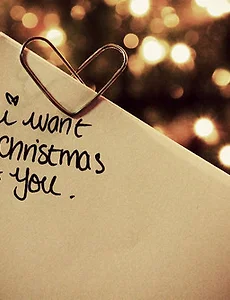 i want
christmas
& you.